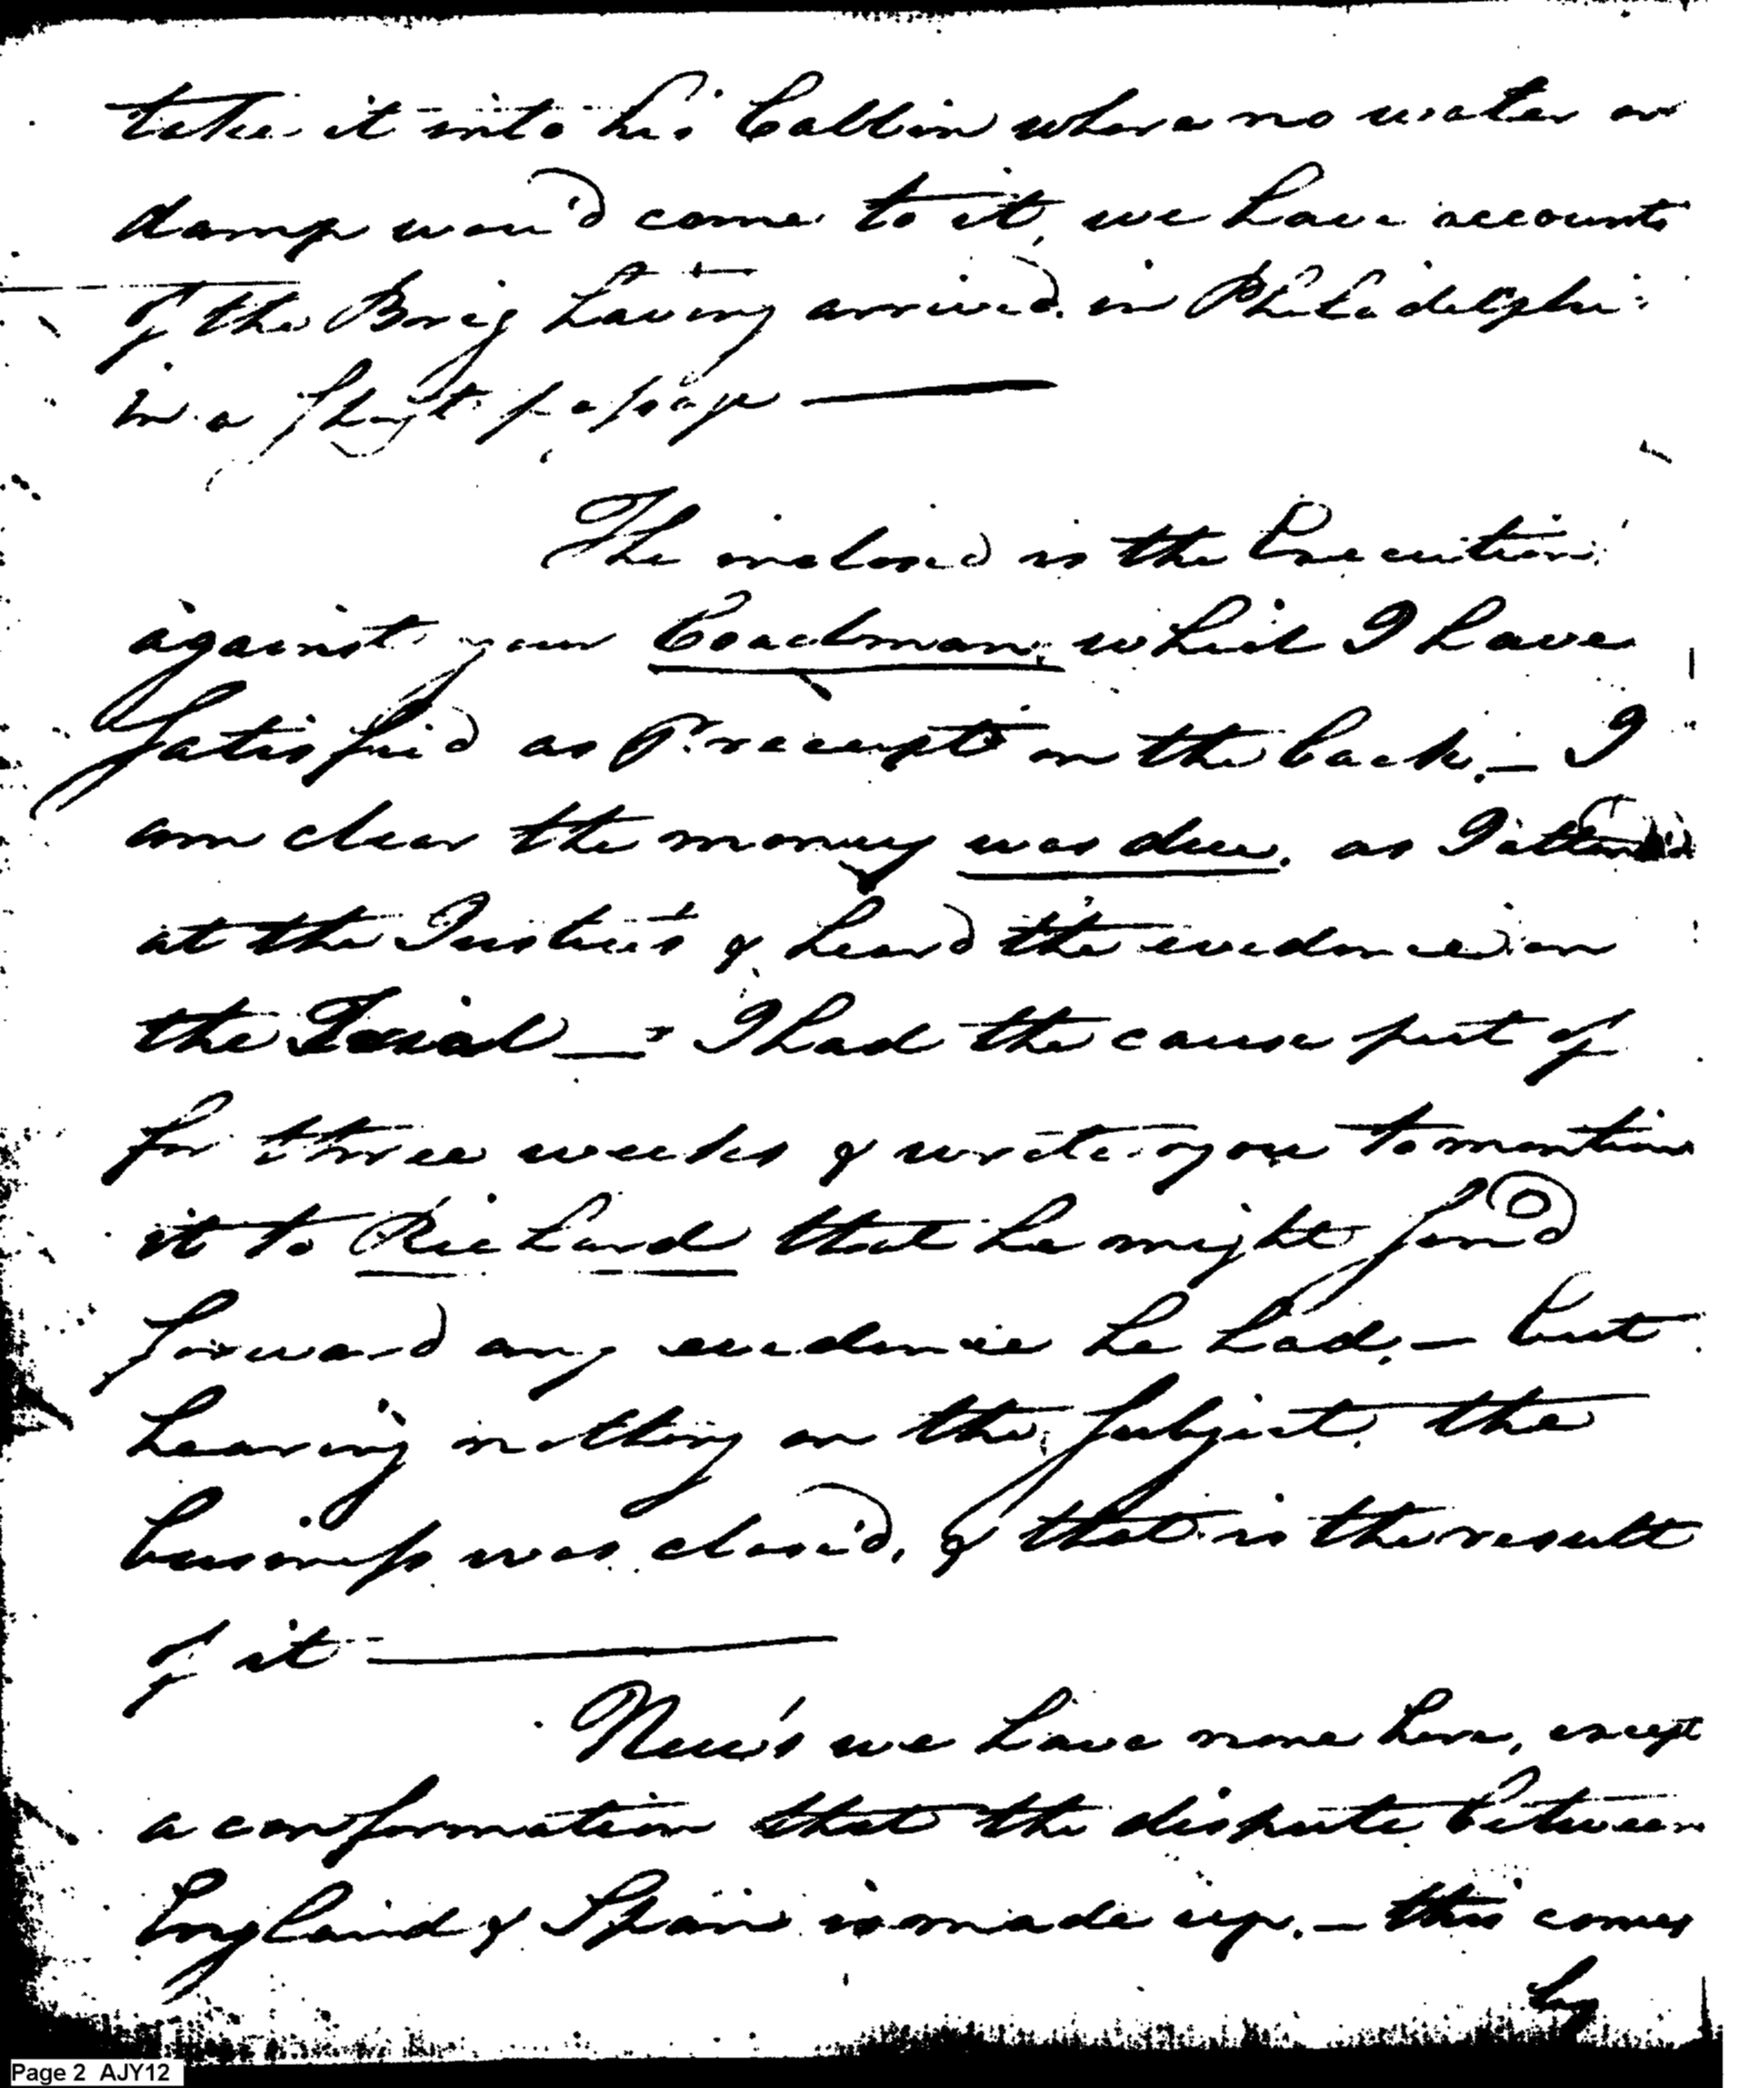 take it into his Cabbin where no water or
damp wou'd come to it, we have accounts
of the Brig having arrived in Philadelphi
in a short passage —
The inclosed is the Execution
against your Coachman which I have
satisfied as Pr. receipt on the back. — I
am clear the money was due. as I attended
at the Justice's & heard the evidence on
the Trial — I had the cause put of
for three weeks & wrote you to mention
it to Richard that he might send
forward any evidence he had, — but
hearing nothing on the subject. the
business was closed, & that is the result
of it —
New's we have none here, except
a conformation that the dispute between
England & Spain is made up. — this comes
by
Page 2 AJY12